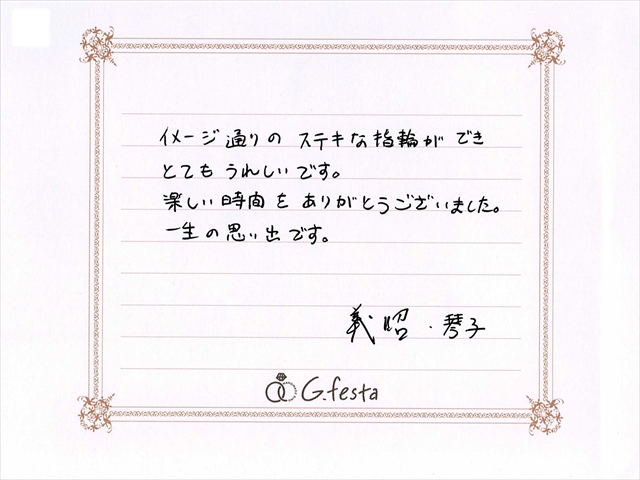 イメージ通りの ステキな指輪ができ
とても うれしいです。
楽しい時間を ありがとうございました。
一生の思い出です。
義昭・琴子
G.festa